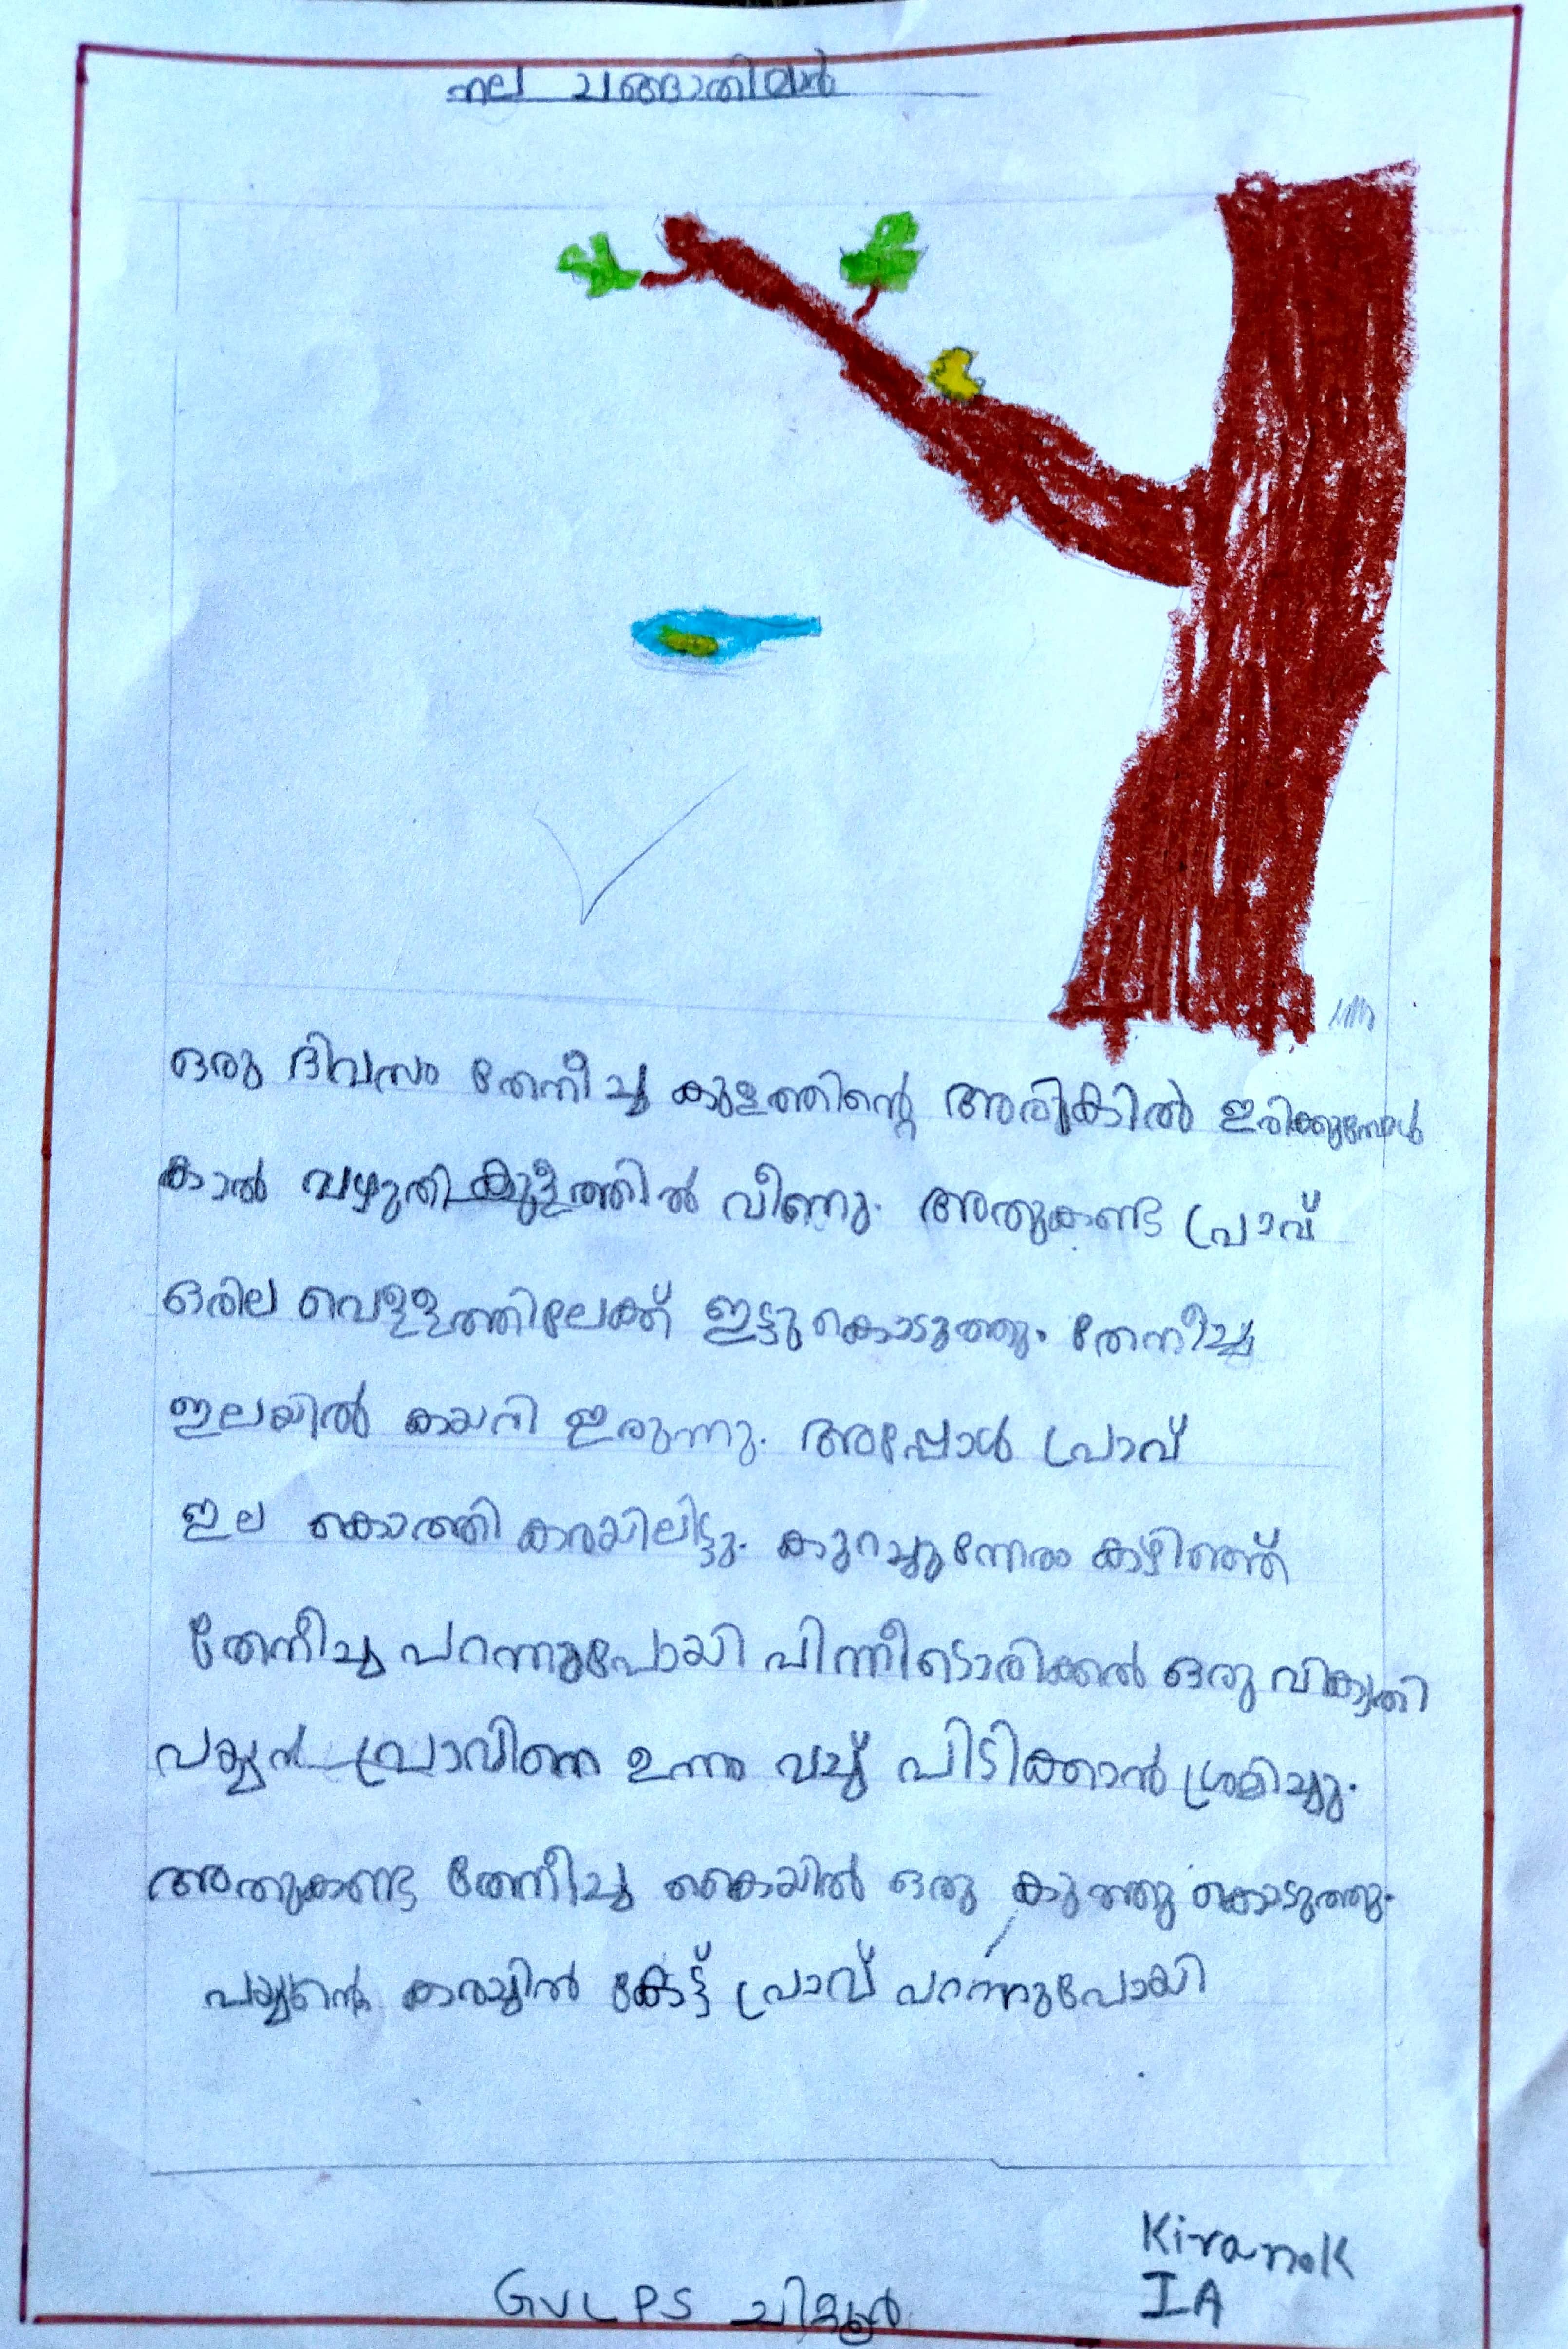 നല ചങ്ങാതിമാർ
ഒരു ദിവസം തേനീച്ച കുളത്തിന്റെ അരികിൽ ഇരിക്കുമ്പോൾ
കാൽ വഴുതി കുളത്തിൽ വീണു. അതുകണ്ട പ്രാവ്
ഒരില വെള്ളത്തിലേക്ക് ഇട്ടുകൊടുത്തു. തേനീച്ച
ഇലയിൽ കയറി ഇരുന്നു. അപ്പോൾ പ്രാവ്
ഇല കൊത്തി കരയിലിട്ടു. കുറച്ചുനേരം കഴിഞ്ഞ്
തേനീച്ച പറന്നുപോയി പിന്നീടൊരിക്കൽ ഒരു വികൃതി
പയ്യൻ പ്രാവിനെ ഉന്നം വച്ച് പിടിക്കാൻ ശ്രമിച്ചു.
അതുകണ്ട തേനീച്ച കൈയിൽ ഒരു കുത്തു കൊടുത്തു.
പയ്യന്റെ കരച്ചിൽ കേട്ട് പ്രാവ് പറന്നുപോയി
Kiran.K
IA
GVLPS ചിറ്റൂർ